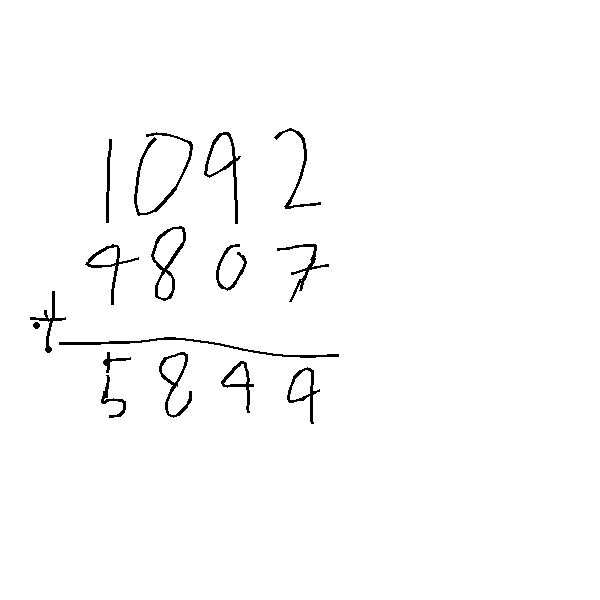 1092
4807
+
5899